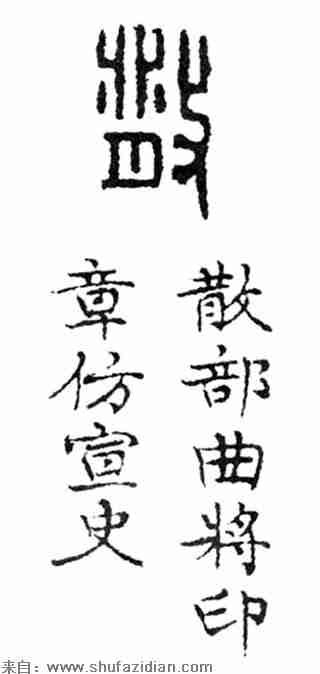 散
散部曲將印
章仿宣史
来自：www.shufazidian.com